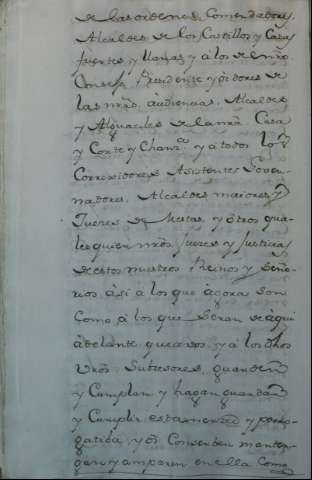 de las ordenes, Comendadores,
Alcaides de los Castillos y Casas
fuertes y llanas y a los de nro.
Consejo Presidente y oidores de
las nras. audiencias, Alcaldes
y Alguaciles de la nra. Casa
y Corte y Chanz.as y a todos los
Correxidores Asistentes Gover-
nadores, Alcaldes maiores y
Jueces de Mestas, y otros qua-
lesquier nros. Jueces y Justicias
de estos nuestros Reinos y Seño-
rios, asi a los que agora son
como a los que seran de aqui
adelante, que a vos, y a los dhos
vros. Subcesores, guarden
y Cumplan y hagan guardar
y Cumplir esta merced y prrog-
gativa, y os Conserben manten-
gan y amparen en ella Como